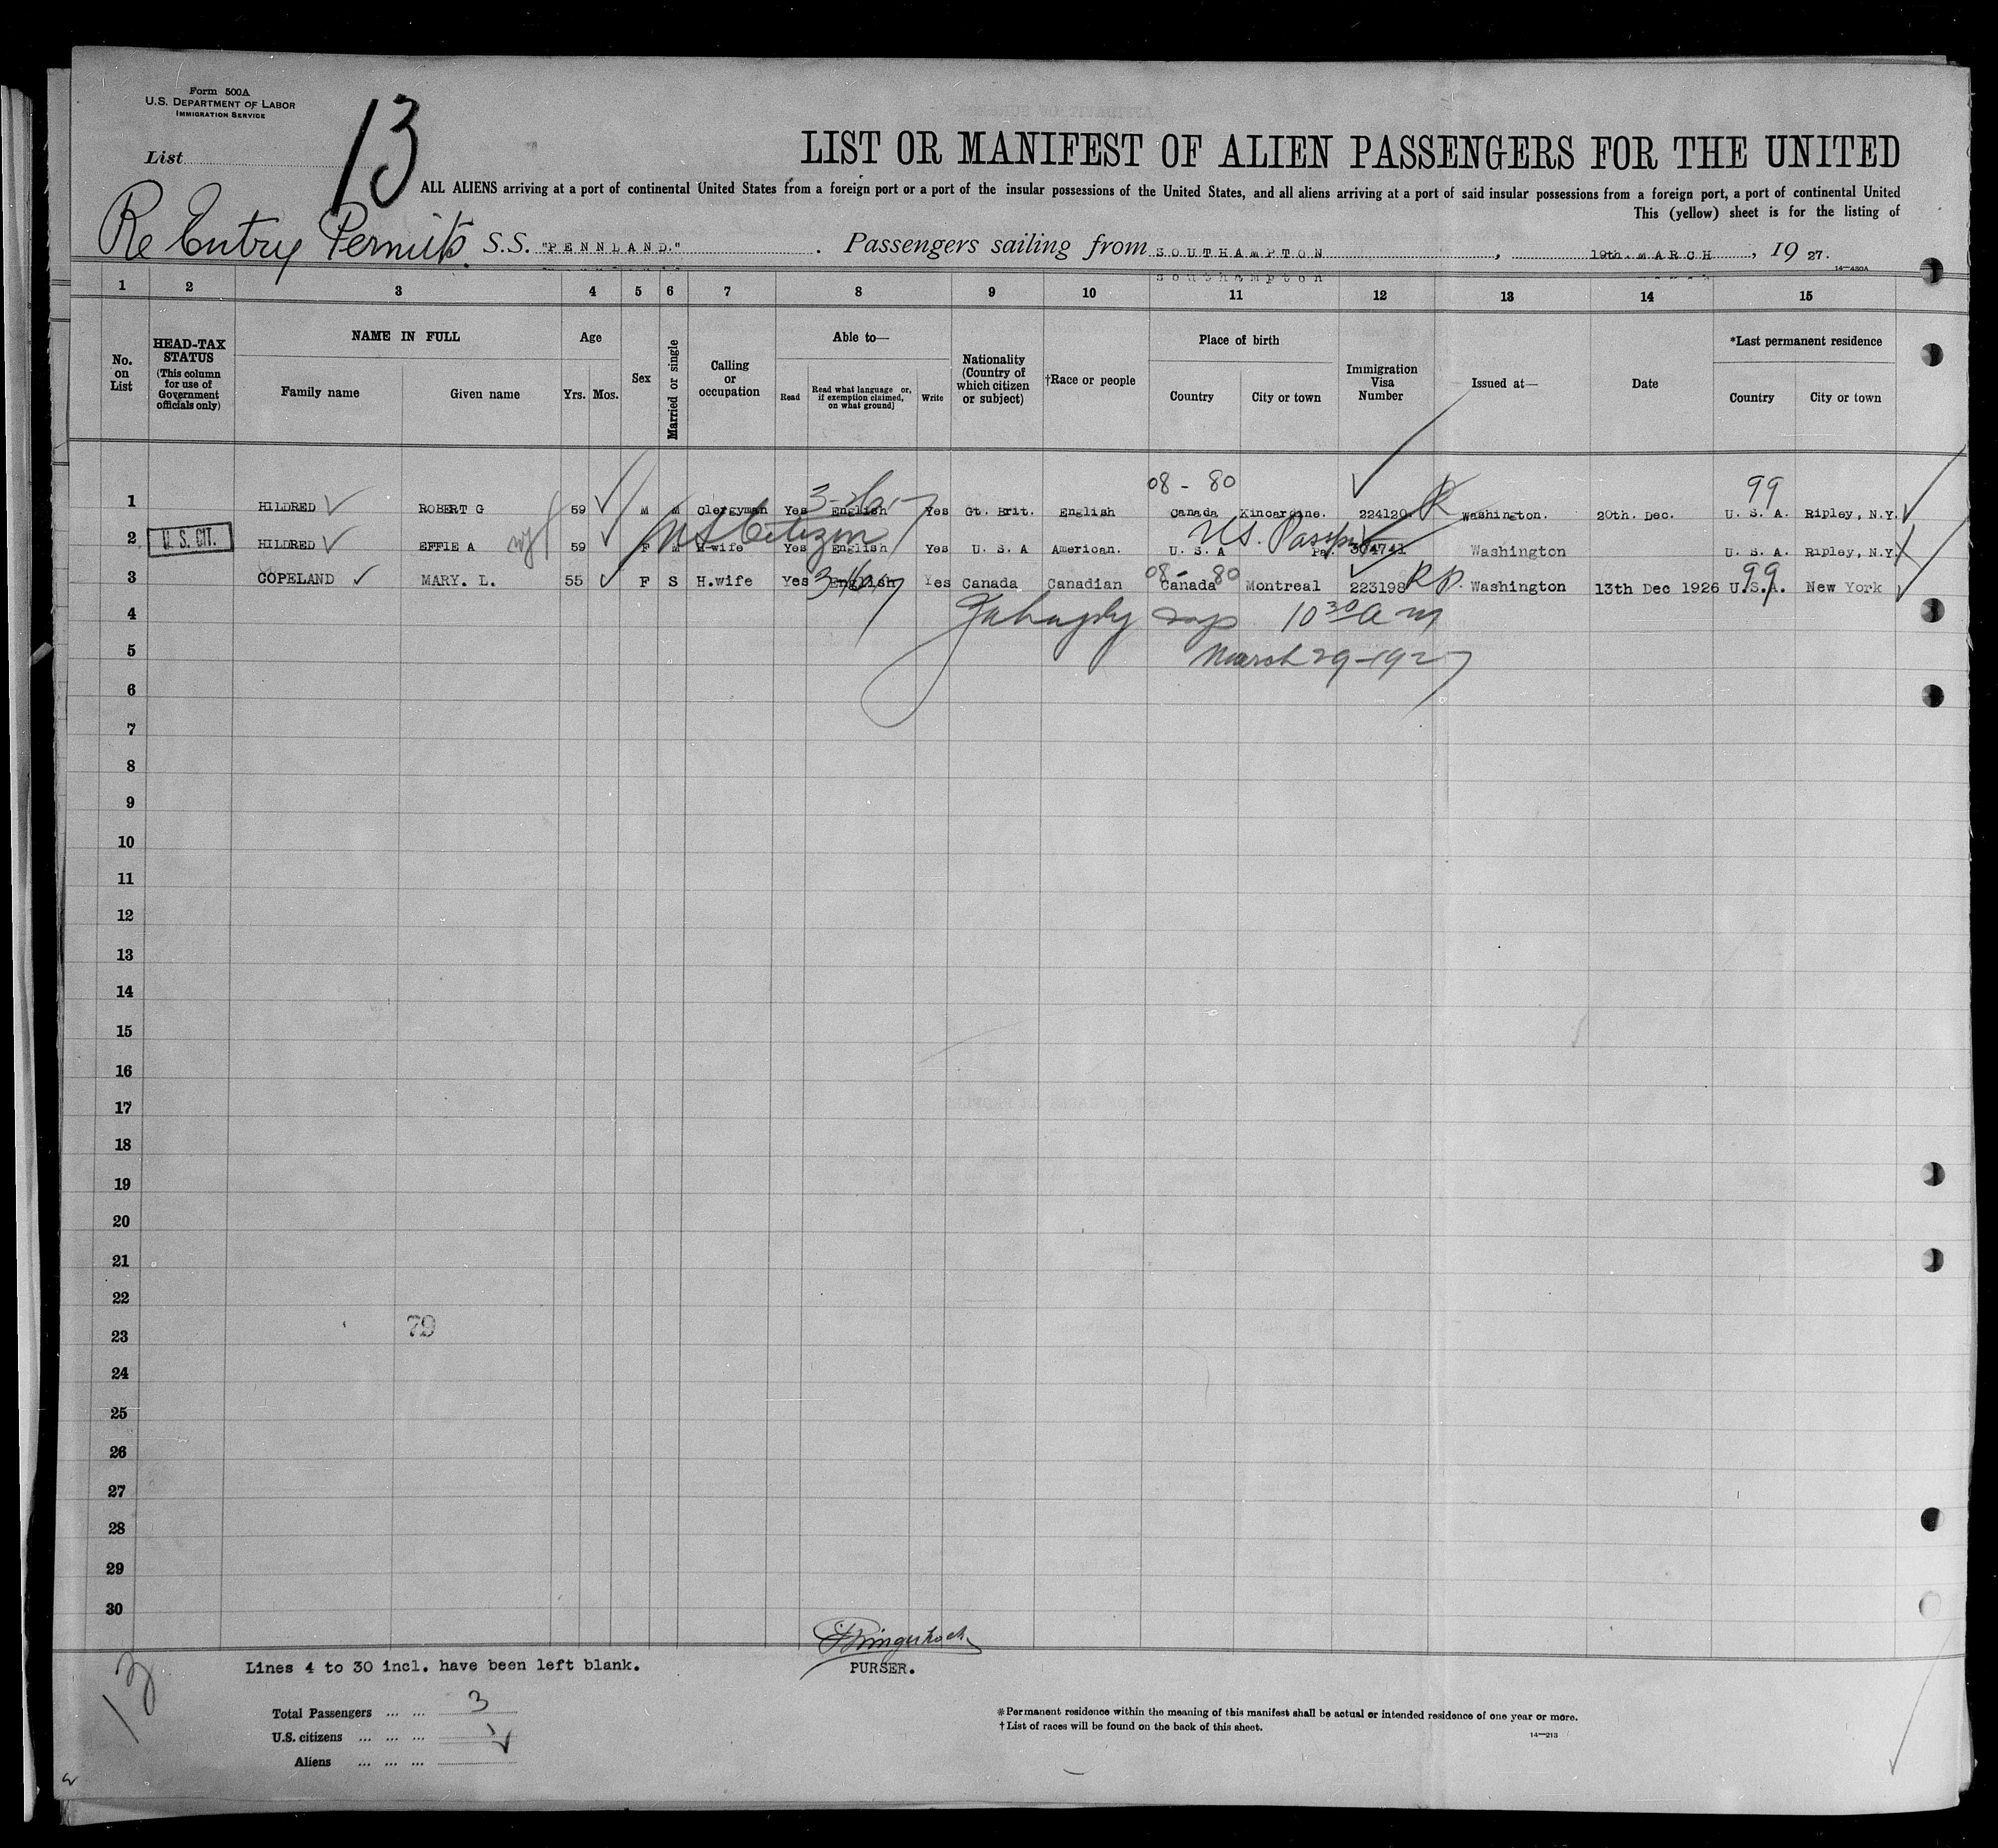 Form 500A
U.S. DEPARTMENT OF LABOR
IMMIGRATION SERVICE
List 13
LIST OR MANIFEST OF ALIEN PASSENGERS FOR THE UNITED
ALL ALIENS arriving at a port of continental United States from a foreign port or a port of the insular possessions of the United States, and all aliens arriving at a port of said insular possessions from a foreign port, a port of continental United
This (yellow) sheet is for the listing of
Re Entry Permits. S.S. "PENNLAND." Passengers sailing from SOUTHAMPTON, 19th. MARCH, 1927.
14—430A
1 2 3 4 5 6 7 8 9 10 11 12 13 14 15
No. on List
HEAD-TAX STATUS (This column for use of Government officials only)
NAME IN FULL
Family name Given name
Age
Yrs. Mos.
Sex
Married or single
Calling or occupation
Able to—
Read Read what language or, if exemption claimed, on what ground) Write
Nationality (Country of which citizen or subject)
†Race or people
Place of birth
Country City or town
Immigration Visa Number
Issued at—
Date
*Last permanent residence
Country City or town
08 - 80 99
1 HILDRED ROBERT G 59 M M Clergyman Yes English Yes Gt. Brit. English Canada Kincardine. 224120. R Washington. 20th. Dec. U. S. A. Ripley, N.Y.
US Citizen US. Passport
2 U. S. CIT. HILDRED EFFIE A wf 59 F M H-wife Yes English Yes U. S. A American. U. S. A Pa. 304741 Washington U. S. A. Ripley, N.Y.
08 - 80 99
3 COPELAND MARY. L. 55 F S H.wife Yes English Yes Canada Canadian Canada Montreal 223198 RP. Washington 13th Dec 1926 U.S.A. New York
4 10 30 A m
5 March 29-1927
6
7
8
9
10
11
12
13
14
15
16
17
18
19
20
21
22
23 79
24
25
26
27
28
29
30
Lines 4 to 30 incl. have been left blank.
PURSER.
13
Total Passengers ... ... 3
U.S. citizens ... ... ... 1
Aliens ... ... ...
*Permanent residence within the meaning of this manifest shall be actual or intended residence of one year or more.
†List of races will be found on the back of this sheet.
14—213